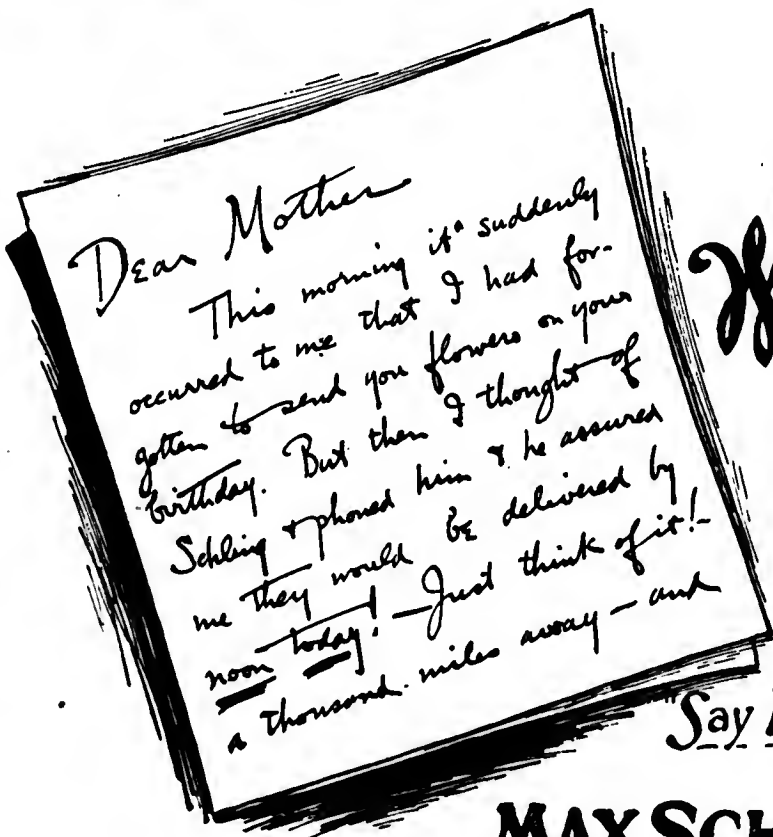 Dear Mother
This morning it suddenly
occurred to me that I had for-
gotten to send you flowers on your
birthday. But then I thought of
Schling & phoned him & he assured
me they would be delivered by
noon today! — Just think of it! —
a thousand miles away — and
"Say
MAX SCH